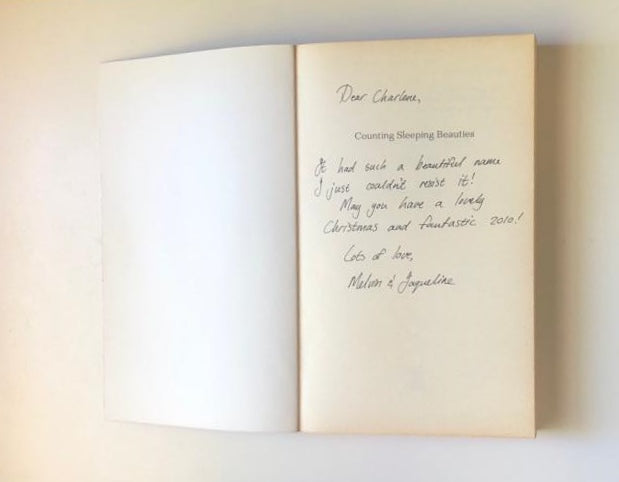 Dear Charlene,
Counting Sleeping Beauties
It had such a beautiful name
I just couldn't resist it!
May you have a lovely
Christmas and fantastic 2010!
Lots of love,
Melvin & Jaqueline